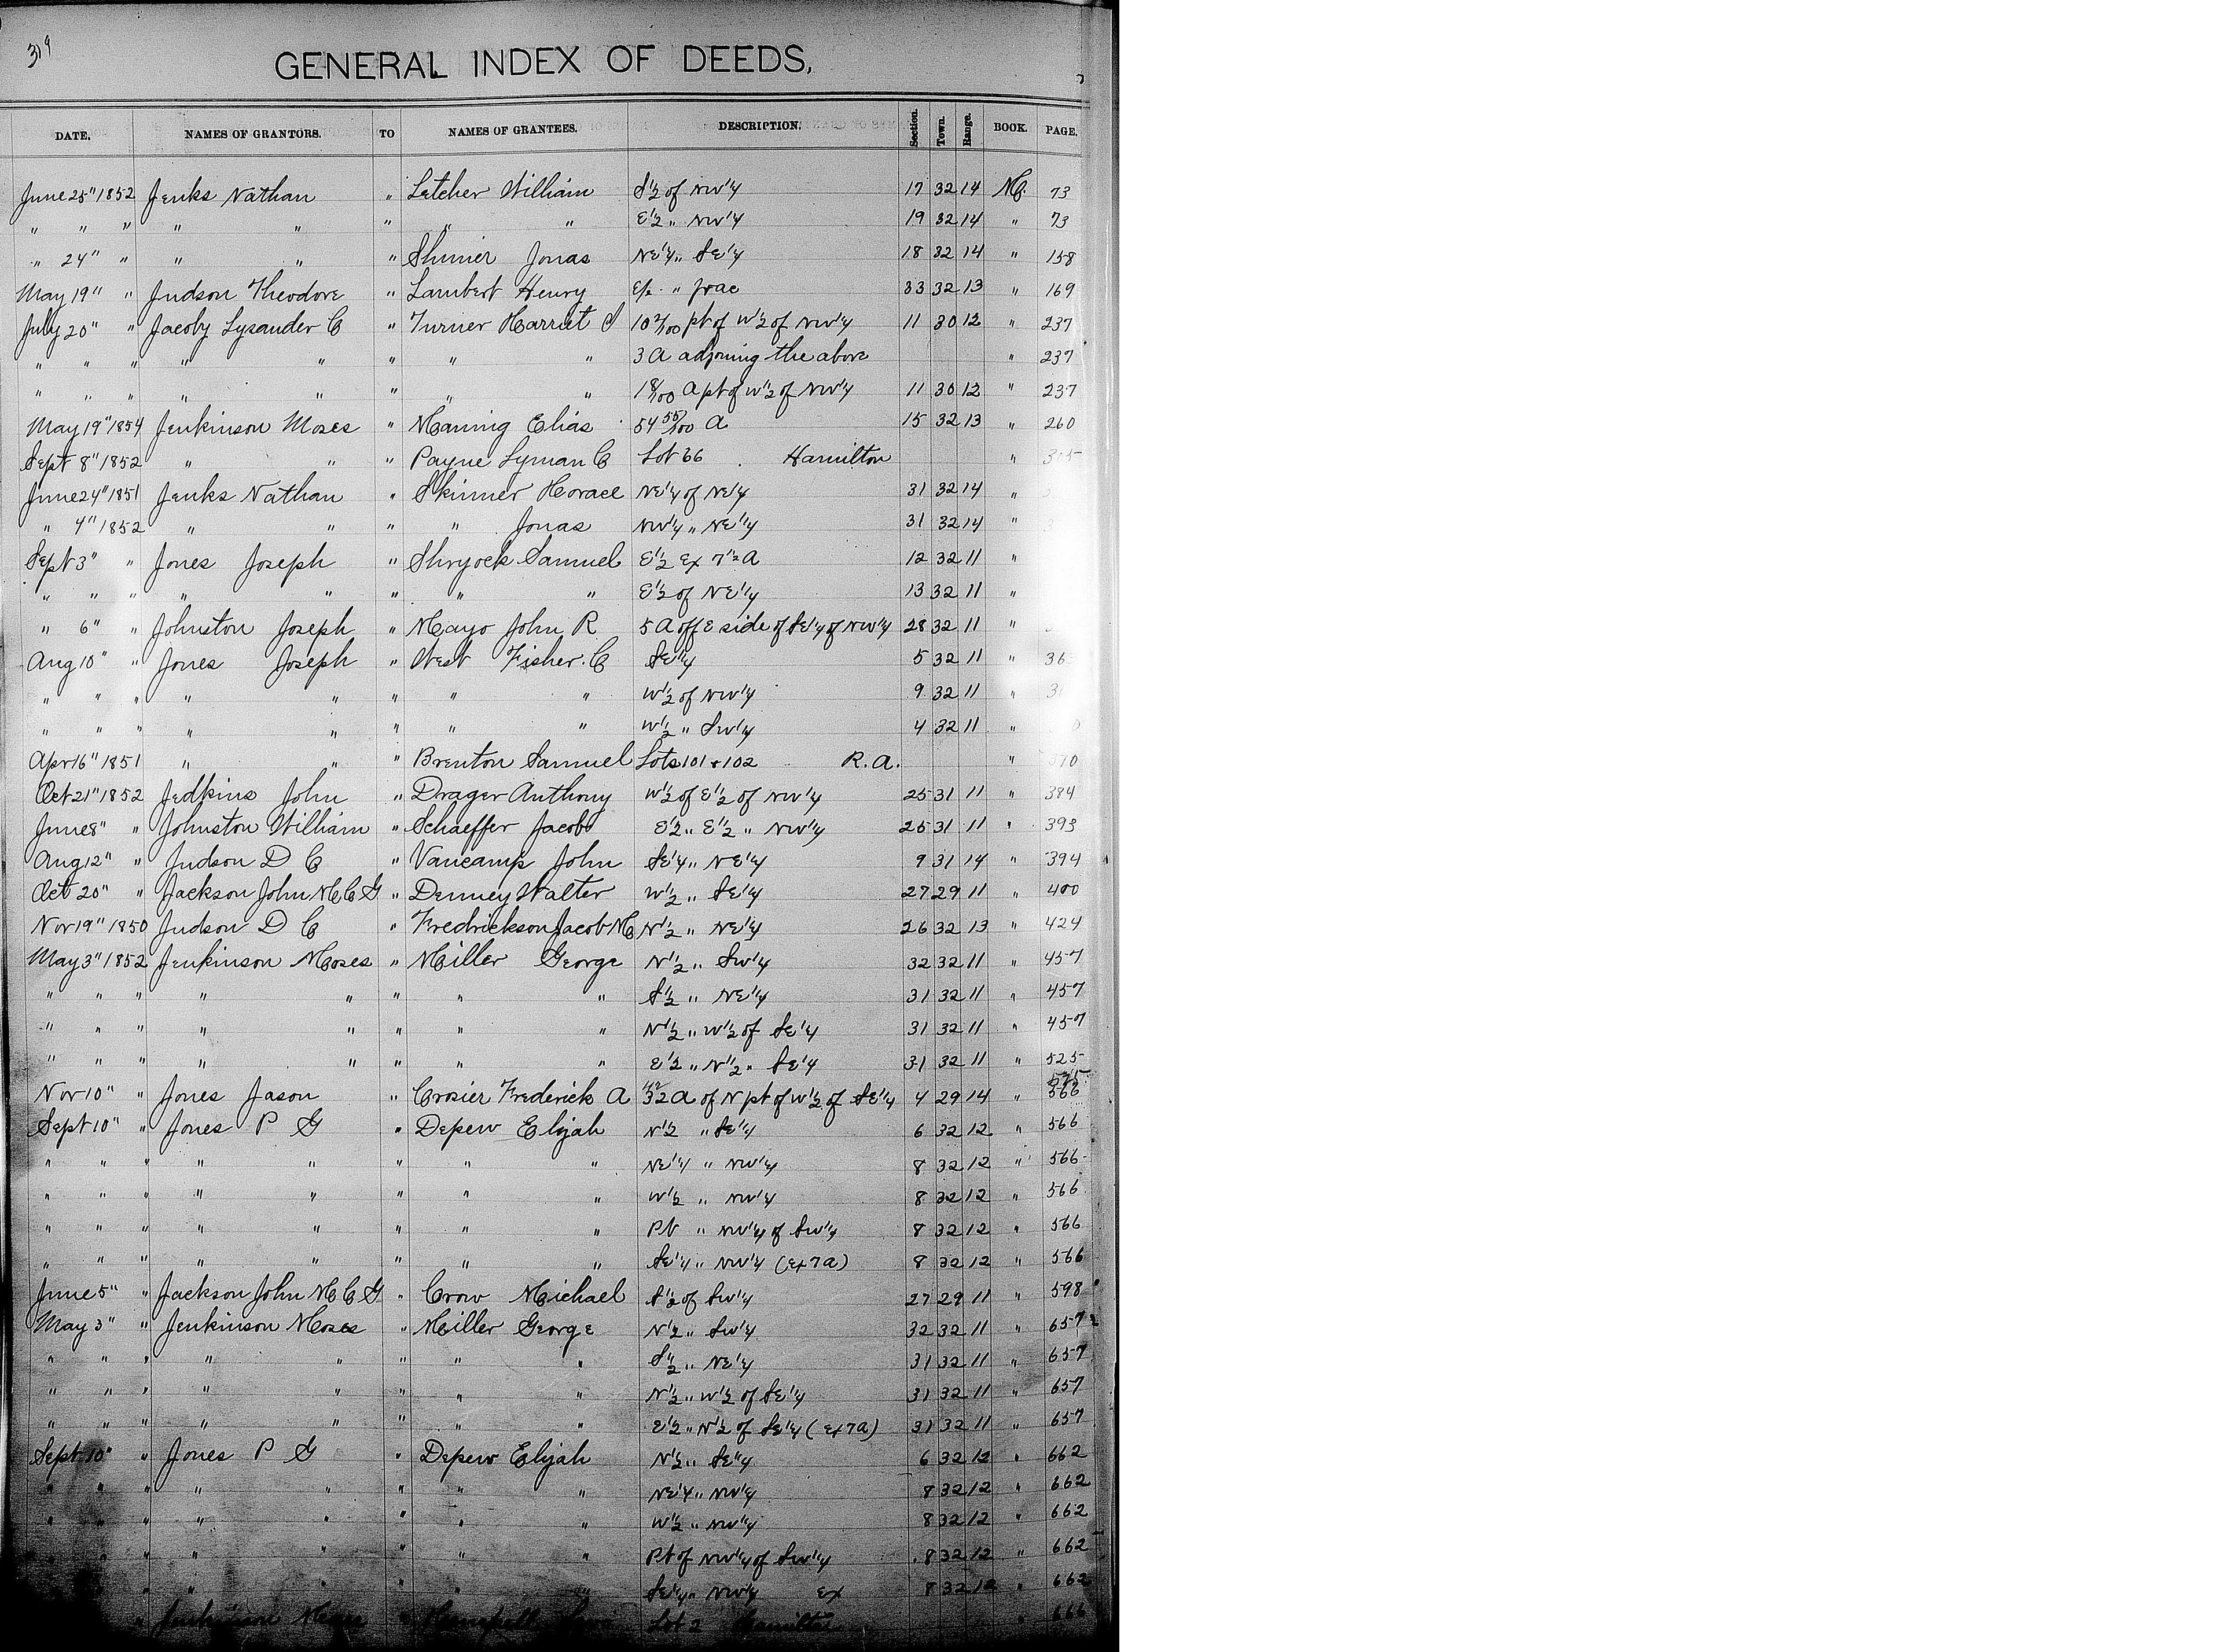 319
GENERAL INDEX OF DEEDS.
DATE. NAMES OF GRANTORS. TO NAMES OF GRANTEES. DESCRIPTION. Section. Town. Range. BOOK. PAGE.
June 25" 1852 Jenks Nathan " Letcher William S 1/2 of NW 1/4 17 32 14 M. 73
" " " " " " " " E 1/2 " NW 1/4 19 32 14 " 73
" 24" " " " " Shimer Jonas NE 1/4 " SE 1/4 18 32 14 " 158
May 19" " Judson Theodore " Lambert Henry E 1/2 " frac 33 32 13 " 169
July 20" " Jacoby Lysander C " Turner Harriet S 10 2/100 pt of W 1/2 of NW 1/4 11 30 12 " 237
" " " " " " " " 3 A adjoining the above " 237
" " " " " " " " 18/100 A pt of W 1/2 of NW 1/4 11 30 12 " 237
May 19" 1854 Jenkinson Moses " Maning Elias 54 55/100 A 15 32 13 " 260
Sept 8" 1852 " " " Payne Lyman C Lot 66 Hamilton " 305
June 24" 1851 Jenks Nathan " Skinner Horace NE 1/4 of NE 1/4 31 32 14 "
" 4" 1852 " " " " Jonas NW 1/4 " NE 1/4 31 32 14 "
Sept 3" " Jones Joseph " Shryock Samuel E 1/2 Ex 7 1/2 A 12 32 11 "
" " " " " " " " E 1/2 of NE 1/4 13 32 11 "
" 6" " Johnston Joseph " Mayo John R 5 A off E side of SE 1/4 of NW 1/4 28 32 11 "
Aug 10" " Jones Joseph " West Fisher C SE 1/4 5 32 11 " 36
" " " " " " " " W 1/2 of NW 1/4 9 32 11 "
" " " " " " " " W 1/2 " SW 1/4 4 32 11 "
Apr 16" 1851 " " " Brenton Samuel Lots 101 & 102 R. A. " 370
Oct 21" 1852 Jedkins John " Drager Anthony W 1/2 of E 1/2 of NW 1/4 25 31 11 " 384
June 8" " Johnston William " Schaeffer Jacob E 1/2 " E 1/2 " NW 1/4 25 31 11 " 393
Aug 12" " Judson D C " Vancamp John SE 1/4 " NE 1/4 9 31 14 " 394
Oct 20" " Jackson John M C G " Denney Walter W 1/2 " SE 1/4 27 29 11 " 400
Nov 19" 1850 Judson D C " Fredrickson Jacob M N 1/2 " NE 1/4 26 32 13 " 424
May 3" 1852 Jenkinson Moses " Miller George N 1/2 " SW 1/4 32 32 11 " 457
" " " " " " " " S 1/2 " NE 1/4 31 32 11 " 457
" " " " " " " " N 1/2 " W 1/2 of SE 1/4 31 32 11 " 457
" " " " " " " " E 1/2 " N 1/2 " SE 1/4 31 32 11 " 525
Nov 10" " Jones Jason " Crosier Frederick A 32 A of N pt of W 1/2 of SE 1/4 4 29 14 " 566
Sept 10" " Jones P G " Depew Elijah N 1/2 " SE 1/4 6 32 12 " 566
" " " " " " " " NE 1/4 " NW 1/4 8 32 12 " 566
" " " " " " " " W 1/2 " NW 1/4 8 32 12 " 566
" " " " " " " " Pt " NW 1/4 of SW 1/4 8 32 12 " 566
" " " " " " " " SE 1/4 " NW 1/4 (Ex 7 a) 8 32 12 " 566
June 5" " Jackson John M C G " Crow Michael S 1/2 of SW 1/4 27 29 11 " 598
May 3" " Jenkinson Moses " Miller George N 1/2 " SW 1/4 32 32 11 " 657
" " " " " " " " S 1/2 " NE 1/4 31 32 11 " 657
" " " " " " " " N 1/2 " W 1/2 of SE 1/4 31 32 11 " 657
" " " " " " " " E 1/2 " N 1/2 of SE 1/4 (Ex 7 a) 31 32 11 " 657
Sept 10" " Jones P G " Depew Elijah N 1/2 " SE 1/4 6 32 12 " 662
" " " " " " " " NE 1/4 " NW 1/4 8 32 12 " 662
" " " " " " " " W 1/2 " NW 1/4 8 32 12 " 662
" " " " " " " " Pt of NW 1/4 of SW 1/4 8 32 12 " 662
" " " " " " " SE 1/4 " NW 1/4 Ex 8 32 12 " 662
" Jenkinson Moses " Lot 2 Hamilton " 666